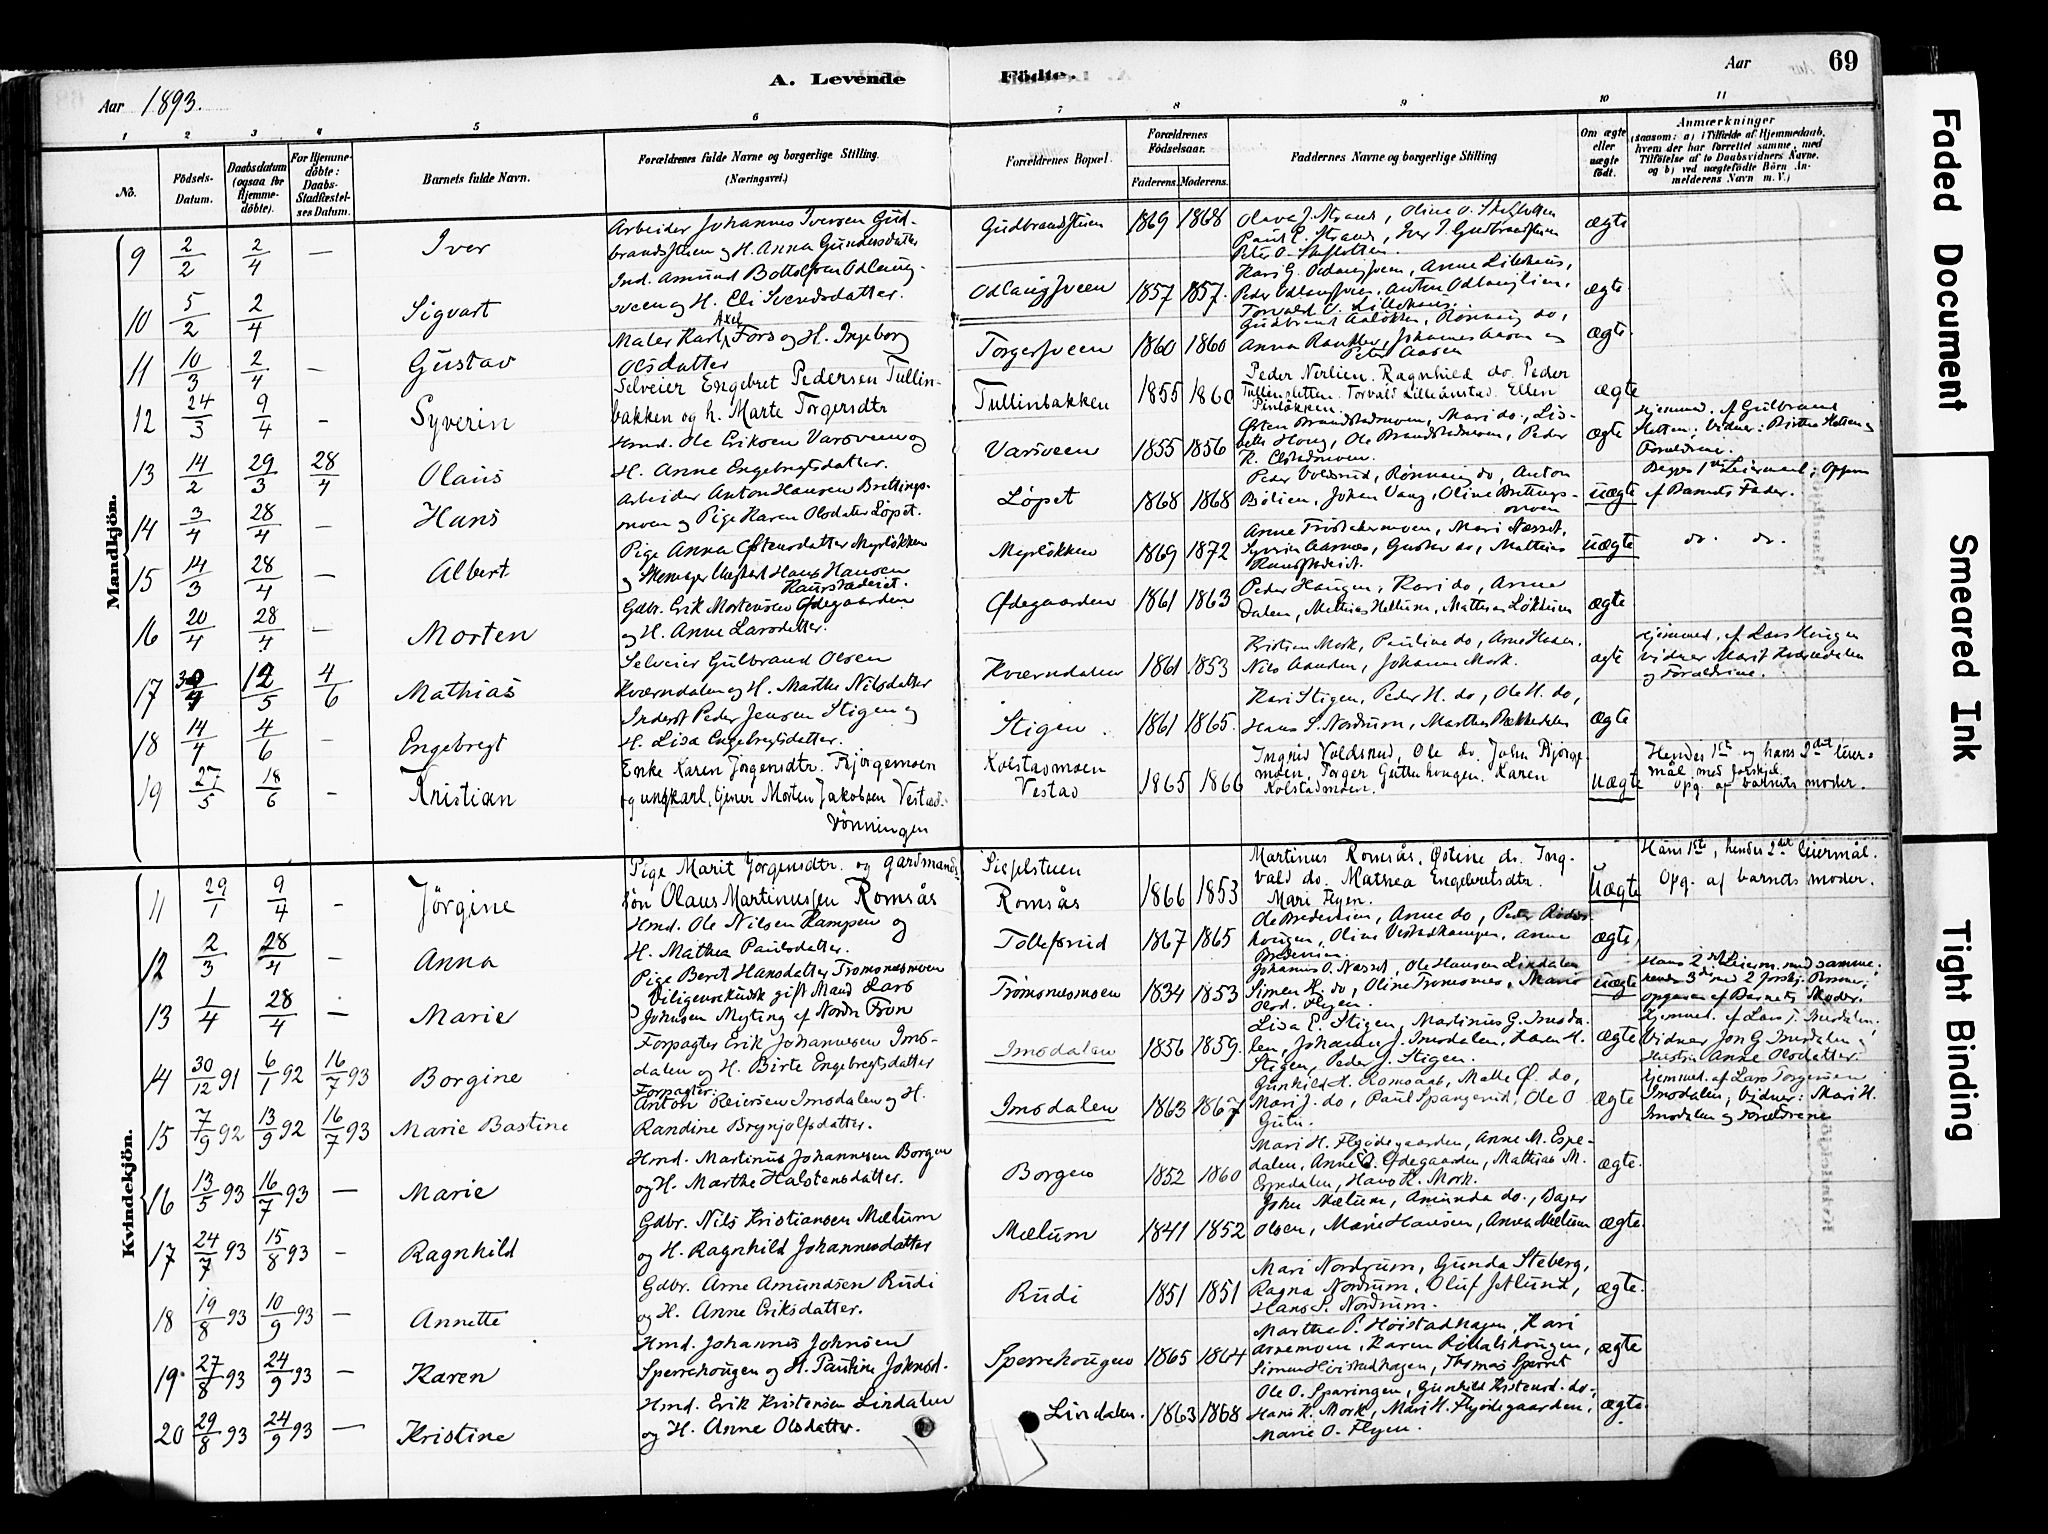 A. Levende Födte.
Aar 69
Aar 1893.
1 2 3 4 5 6 7 8 9 10 11
No. Födsels-Datum. Daabsdatum (ogsaa for Hjemmedöbte). For Hjemmedöbte: Daabs-Stadfæstelses Datum. Barnets fulde Navn. Forældrenes fulde Navne og borgerlige Stilling. (Næringsvei.) Forældrenes Bopæl. Forældrenes Födselsaar. Faderens. Moderens. Faddernes Navne og borgerlige Stilling Om ægte eller uægte födt. Anmærkninger (saasom: a) i Tilfælde af Hjemmedaab, hvem der har forrettet samme, med Tilföielse af to Daabsvidners Navne, og b) ved uægtefödte Börn Anmelderens Navn m. V.)
Mandkjön.
9 2/2 2/4 — Iver Arbeider Johannes Iversen Gudbrandstuen og H. Anna Gundersdatter Gudbrandstuen 1869 1868 Olava J. Strand, Oline O. Paul E. Strand, Iver I. Gudbrandstuen Peter O. ægte
10 5/2 2/4 Sigvart Ind. Amund Bottolfsen Odlaugsveen og H. Eli Svendsdatter. Odlaugsveen 1857 1857. Kari G. Odlaugsveen, Anne Lillehaus, Peder Odlaugsveen, Anton Odlauglien, Torvald O. Lillehaus. ægte
11 10/3 2/4 — Gustav Maler Karl Axel Fors og H. Ingeborg Olsdatter Torgersveen 1860 1860 Gudbrand Aaløkken, Rønnaug do, Anna Johannes Aasen og Peter Aasen ægte.
12 24/3 9/4 — Syverin Selveier Engebret Pedersen Tullinbakken og h. Marte Torgersdtr Tullinbakken 1855 1860 Peder Nerlien. Ragnhild do. Peder Tullinsletten. Torvald Lilleånstad. Ellen Pinløkken. ægte
13 14/2 29/3 28/4 Olaus Hmd. Ole Eriksen Varsveen og H. Anne Engebregtsdatter. Varsveen 1855 1856 Østen Brandstadmoen, Mari do., Lisbeth Houg, Ole Brandstadmoen, Peder K. ægte Hjemmed. af Gulbrand Vidner: Birthe og Forældrene.
14 3/4 28/4 — Hans Arbeider Anton Hansen Brettingsmoen og Pige Karen Olsdatter Løpet. Løpet 1868 1868 Peder Voldsrud, Rønnaug do, Anton Bølien, Johan Vang, Oline Brettingsmoen uægte Begges 1ste Leiermaal; Opgivet af Barnets Fader.
15 14/3 28/4 — Albert Pige Anna Østensdatter Myrløkken og Ungkarl Hans Hansen Myrløkken 1869 1872 Anne Mari Næsset, Syverin Aarnes, Gustav do, Mathias uægte do. do.
16 20/4 28/4 — Morten Gdbr. Erik Mortensen Ødegaarden og H. Anne Larsdatter. Ødegaarden 1861 1863 Peder Haugen, Kari do, Anne Dalen, Mathias Hellum, Mathias Løkhuen ægte
17 30/4 12/5 4/6 Mathias Selveier Gulbrand Olsen Kværndalen og H. Marthe Nilsdatter Kværndalen 1861 1853 Kristian Mork, Pauline do, Nils Johanne Mork. ægte Hjemmed. af Lars Haugen vidner Marit Kværndalen og Forældrene.
18 14/4 4/6 — Engebregt Inderst Peder Jensen Stigen og H. Lisa Engebregtsdatter. Stigen 1861 1865. Kari Stigen, Peder H. do, Ole H. do, Hans S. Nordrum, Marthe Bækkedalen ægte
19 27/5 18/6 — Kristian Enke Karen Jørgensdtr. Bjørgemoen og ungkarl, tjener Morten Jakobsen Vestadvønningen Kolstadmoen Vestad 1865 1866 Ingrid Voldsrud, Ole do. John Bjørgemoen. Torger Gutterhougen. Karen Kolstadmoen. Uægte Hendes 1ste og hans 2det leiermål med forskjel. Opg. af barnets moder.
Kvindekjön.
11 29/1 9/4 — Jörgine Pige Marit Jörgensdtr. og gardmandssön Olaus Martinussen Romsås Romsås 1866 1853 Martinus Romsås, Østine do. Ingvald do. Mathea Engebretsdtr. Mari Flyen. Uægte Hans 1ste, hendes 2det leiermål. Opg. af barnets moder.
12 2/3 28/4 — Anna Hmd. Ole Nilsen Kampen og H. Mathea Paulsdatter. Tollefsrud 1867 1865 Ole Bredevien, Anne do, Peder Oline Vestadkampen, Anne Bredevien. ægte
13 1/4 28/4 — Marie Pige Beret Hansdatter Tromsnesmoen gift Mand Lars Johnsen Myting af Nordre Fron Tromsnesmoen 1834 1853 Johannes O. Næsset, Ole Hansen Lindalen Simen H. do, Oline Tromsnes, Marie Olsd. Flyen. uægte Hans 2det Leierm. med samme, hendes 3die med 2 forskj. Personer, opgiven af Barnets Moder.
14 30/12 91 6/1 92 16/7 93 Borgine Forpagter Erik Johannesen Imsdalen og H. Birte Engebregtsdatter Imsdalen 1856 1859. Lisa E. Stigen, Martinus G. Imsdalen, Johannes J. Imsdalen, Karen H. Stigen, Peder J. Stigen. ægte Hjemmed. af Lars T. Imsdalen; Vidner Jon G. Imsdalen og Hustru Anne Olsdatter.
15 7/9 92 13/9 92 16/7 93 Marie Bastine Forpagter. Anton Reiersen Imsdalen og H. Randine Brynjolfsdatter. Imsdalen 1863 1867 Gunhild H. Romsaas, Mathe Ø. do, Mari J. do, Paul Spangrud, Ole O ægte Hjemmed. af Lars Torgersen Imsdalen; Vidner: Mari H. Imsdalen og Forældrene
16 13/5 93 16/7 93 — Marie Hmd. Martinus Johannesen Borgen og H. Marthe Halstensdatter. Borgen 1852 1860 Mari H. Flyødegaarden, Anne M. Espedalen, Anne O. Ødegaarden, Mathias M. Espedalen, Hans K. Mork. ægte.
17 24/7 93 15/8 93 — Ragnhild Gdbr. Nils Kristiansen Mælum og H. Ragnhild Johannesdatter Mælum 1841 1852 John Mælum, Amunda do., Dager Olsen, Marie Hansen, Anna Mælum ægte.
18 19/8 93 10/9 93 — Annette Gdbr. Arne Amundsen Rudi og H. Anne Eriksdatter. Rudi 1851 1851 Mari Nordrum, Gunda Steberg, Ragna Nordrum, Oluf Jetlund, Hans S. Nordrum. ægte.
19. 27/8 93 24/9 93 — Karen Hmd. Johannes Johnsen Sperrehougen og H. Pauline Johnsd. Sperrehougen 1865 1864 Marthe P. Høistadhagen, Kari Arnemoen, Karen Simen Høistadhagen, Thomas Sperret ægte
20 29/8 93 24/9 93 — Kristine Hmd. Erik Kristensen Lindalen og H. Anne Olsdatter. Lindalen. 1863 1868 Ole O. Sparingen, Gunhild Kristensd. do., Hans K. Mork, Mari H. Flyødegaarden, Marie O. Flyen. ægte.
Faded Document
Smeared Ink
Tight Binding